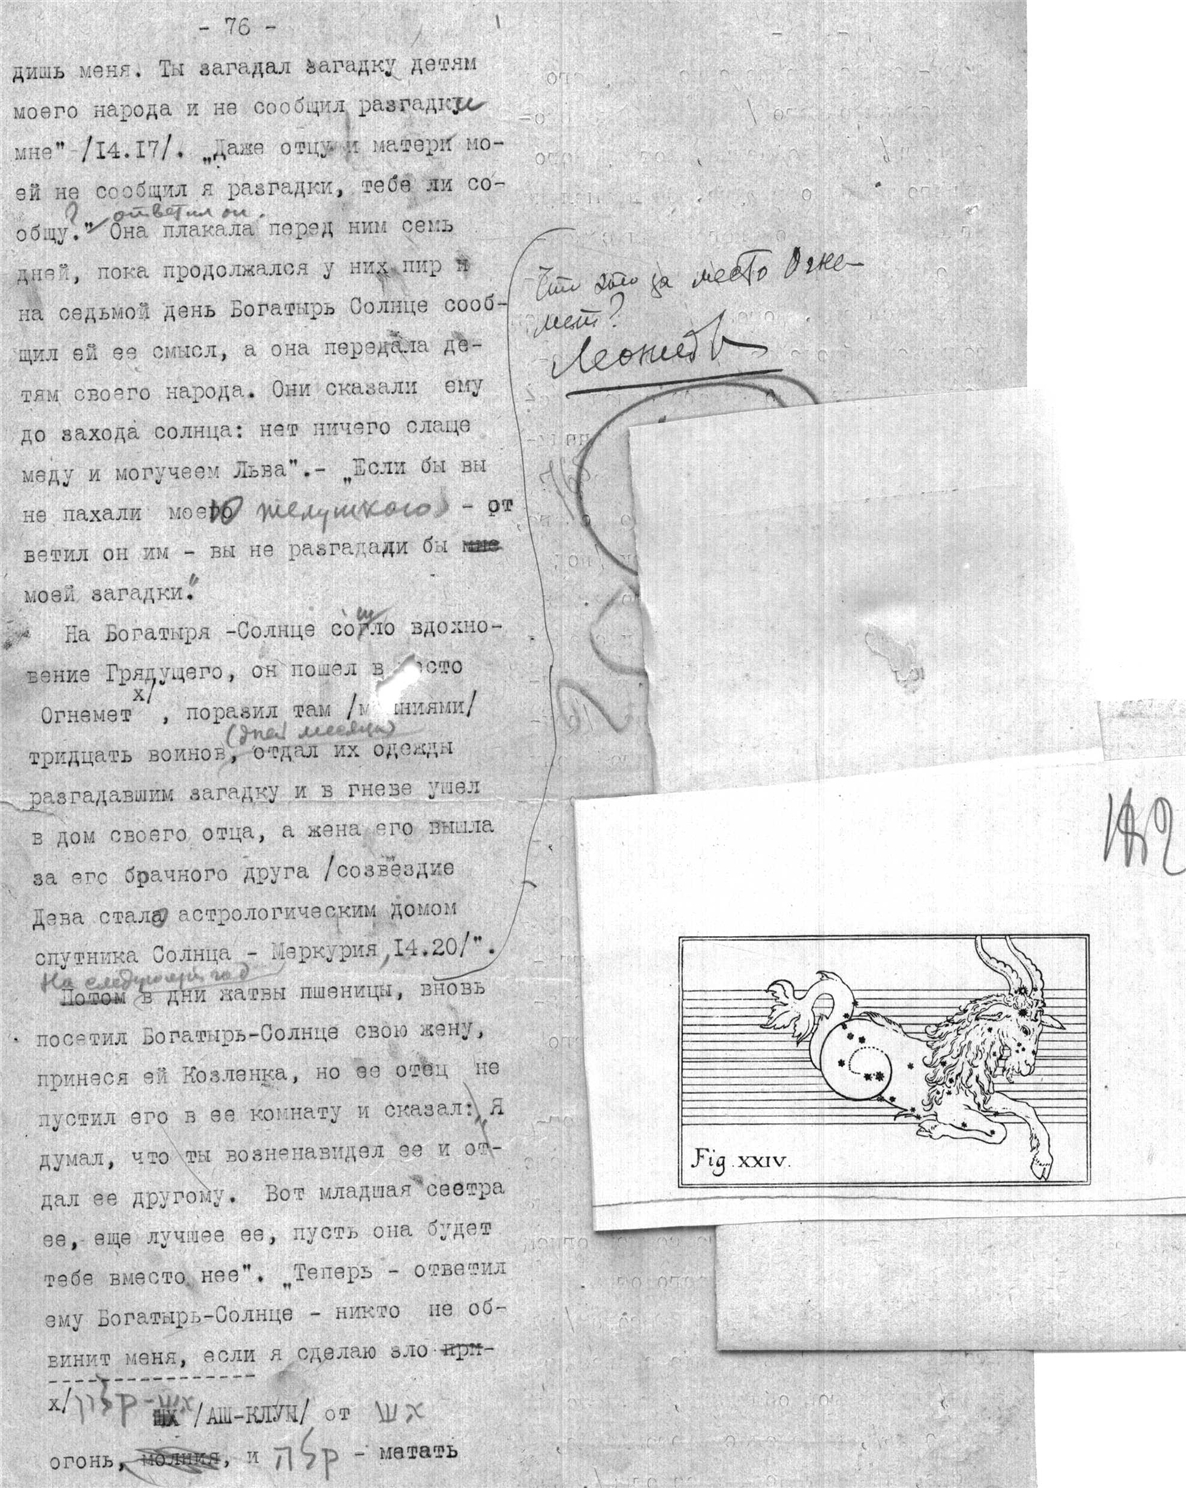 - 76 -
дишь меня. Ты загадал загадку детям
моего народа и не сообщил разгадки
мне" /14.17/. „Даже отцу и матери мо-
ей не сообщил я разгадки, тебе ли со-
ответил он.
общу?" Она плакала перед ним семь
дней, пока продолжался у них пир и
на седьмой день Богатырь Солнце сооб-
щил ей ее смысл, а она передала де-
тям своего народа. Они сказали ему
до захода солнца: нет ничего слаще
меду и могучеем Льва".- „Если бы вы
не пахали моею - от
ветил он им - вы не разгадади бы мне
моей загадки."
На Богатыря -Солнце сошло вдохно-
вение Грядущего, он пошел в
Огнемет x/, поразил там
(дней месяца)
тридцать воинов, отдал их одежды
разгадавшим загадку и в гневе ушел
в дом своего отца, а жена его вышла
за его брачного друга /созвездие
Дева стала астрологическим домом
спутника Солнца - Меркурия, 14.20/".
На следующий год
Потом в дни жатвы пшеницы, вновь
посетил Богатырь-Солнце свою жену,
принеся ей Козленка, но ее отец не
пустил его в ее комнату и сказал: „Я
думал, что ты возненавидел ее и от-
дал ее другому. Вот младшая сестра
ее, еще лучшее ее, пусть она будет
тебе вместо нее". „Теперь - ответил
ему Богатырь-Солнце - никто не об-
винит меня, если я сделаю зло при-
x/ /АШ-КЛУН/ от
огонь, молния, и - метать
Что это за место Огне-
мет?
Fig. XXIV.